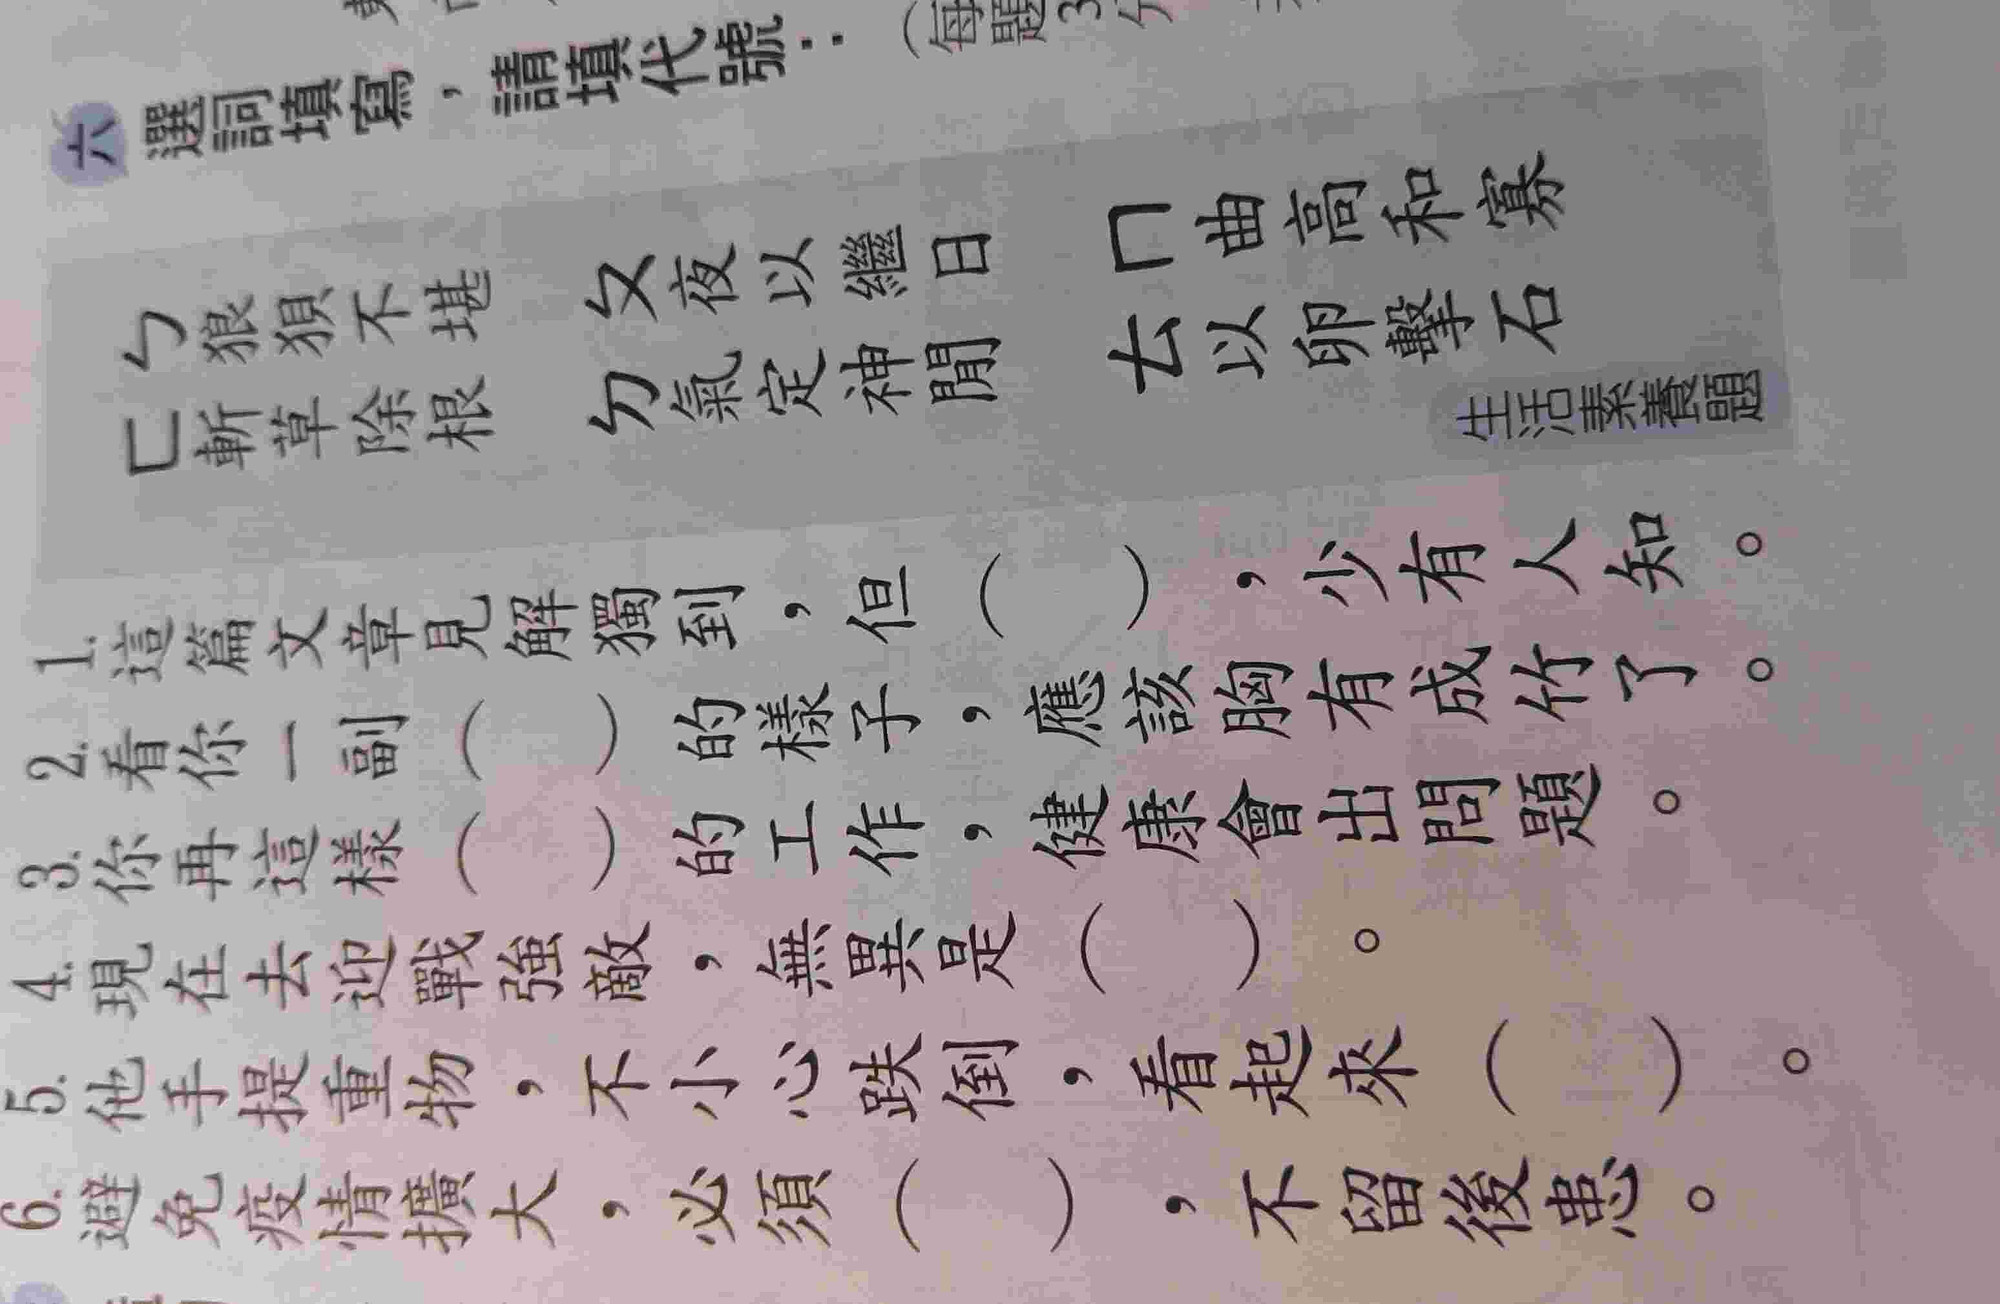 六 選詞填寫，請填代號：（每題3分
ㄅ狼狽不堪 ㄆ夜以繼日 ㄇ曲高和寡
ㄈ斬草除根 ㄉ氣定神閒 ㄊ以卵擊石
生活素養題
1.這篇文章見解獨到，但（　），少有人知。
2.看你一副（　）的樣子，應該胸有成竹了。
3.你再這樣（　）的工作，健康會出問題。
4.現在去迎戰強敵，無異是（　）。
5.他手提重物，不小心跌倒，看起來（　）。
6.避免疫情擴大，必須（　），不留後患。